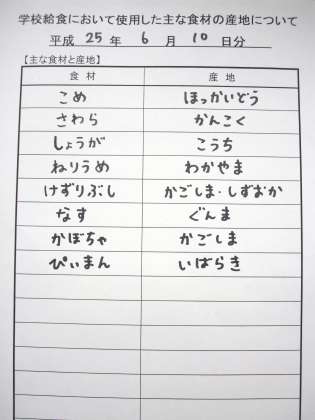 学校給食において使用した主な食材の産地について
平成 25 年 6 月 10 日分
【主な食材と産地】
食材 産地
こめ ほっかいどう
さわら かんこく
しょうが こうち
ねりうめ わかやま
けずりぶし かごしま・しずおか
なす ぐんま
かぼちゃ かごしま
ぴぃまん いばらき